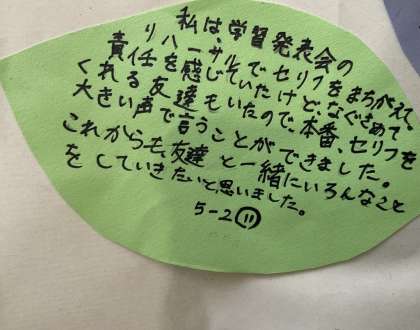 私は、学習発表会の
リハーサルでセリフをまちがえて
責任を感じていたけど、なぐさめて
くれる友達もいたので、本番、セリフを
大きい声で言うことができました。
これからも、友達と一緒にいろんなこと
をしていきたいと、思いました。
5-2⑪